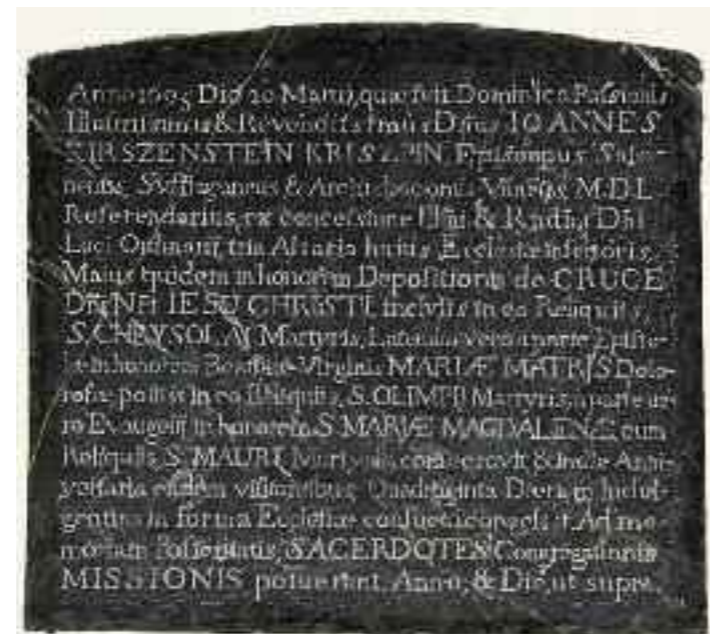 Anno 1695 Die 20 Martij, quæ fuit Dominica Passionis
Illustrissimus & Reverendissimus Dnus IOANNES
KIRSZENSTEIN KRISZPIN Episcopus Samo-
Suffraganeus & Archidiaconus M.D.L.
Referendarius, ex concessione & Dni
Loci Ordinarij, tria Altaria huius Ecclesiæ inferioris,
Maius quidem in honorem Depositionis de CRUCE
DNI NRI IESU CHRISTI, inclusis in eo Reliquijs,
S. CHRYSOLAI Martyris, Laterale vero a parte Episto-
læ in honorem Beatissæ Virginis MARIÆ MATRIS Dolo-
rosæ positis in eo Reliquijs, S. OLIMPII Martyris, a parte ve-
ro Evangelij in honorem S. MARIÆ MAGDALENÆ cum
Reliquijs, S. MAURI Martyris consecravit & in die Anni-
versaria eadem visitantibus, Quadraginta Dierum Indul-
gentiam in forma Ecclesiæ consueta concessit. Ad me-
moriam Posteritatis, SACERDOTES Congregationis
MISSIONIS posuerunt, Anno, & Die, ut supra.